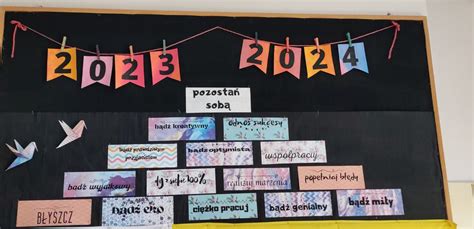 2023 2024
pozostań
sobą
bądź kreatywny
odnoś sukcesy
bądź prawdziwym
przyjacielem
bądź optymistą
współpracuj
bądź wyjątkowy
realizuj marzenia
popełniaj błędy
BŁYSZCZ
bądź eko
ciężko pracuj
bądź genialny
bądź miły